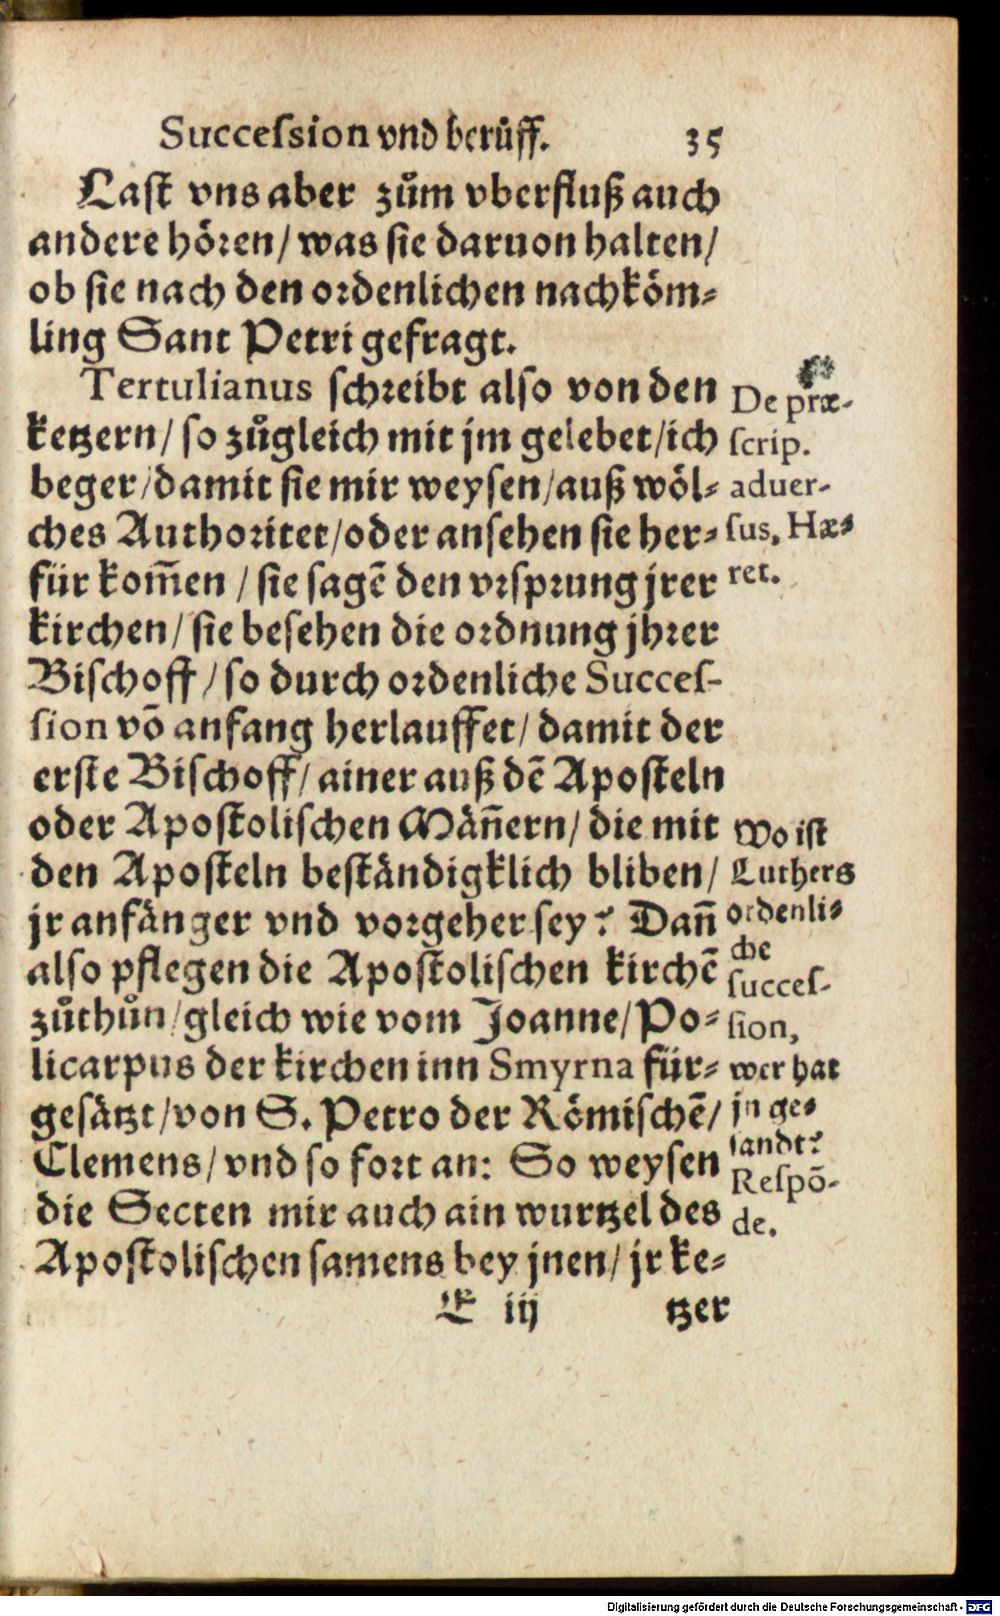 Succeſsion vnd berůff. 35
Laſt vns aber zům vberfluß auch
andere hören/ was ſie daruon halten/
ob ſie nach den ordenlichen nachköm⸗
ling Sant Petri gefragt.
Tertulianus ſchreibt alſo von den
ketzern/ ſo zůgleich mit jm gelebet/ich
beger/damit ſie mir weyſen/auß wöl⸗
ches Authoritet/oder anſehen ſie her⸗
für kom̄en / ſie ſagē den vrſprung jrer
kirchen/ ſie beſehen die ordnung jhrer
Biſchoff / ſo durch ordenliche Succeſ-
ſion vō anfang herlauffet/ damit der
erſte Biſchoff/ ainer auß dē Apoſteln
oder Apoſtoliſchen Män̄ern/ die mit
den Apoſteln beſtändigklich bliben/
jr anfänger vnd vorgeher ſey? Dan̄
alſo pflegen die Apoſtoliſchen kirchē
zůthůn/gleich wie vom Joanne/ Po⸗
licarpus der kirchen inn Smyrna für⸗
geſätzt/von S. Petro der Römiſchē/
Clemens/ vnd ſo fort an: So weyſen
die Secten mir auch ain wurtzel des
Apoſtoliſchen ſamens bey jnen/ jr ke⸗
E iij tzer
De præ-
ſcrip.
aduer-
ſus. Hæ⸗
ret.
Wo iſt
Luthers
ordenli⸗
che
ſucceſ-
ſion,
wer hat
jn ge⸗
ſandt?
Reſpō-
de.
Digitalisierung gefördert durch die Deutsche Forschungsgemeinschaft - DFG